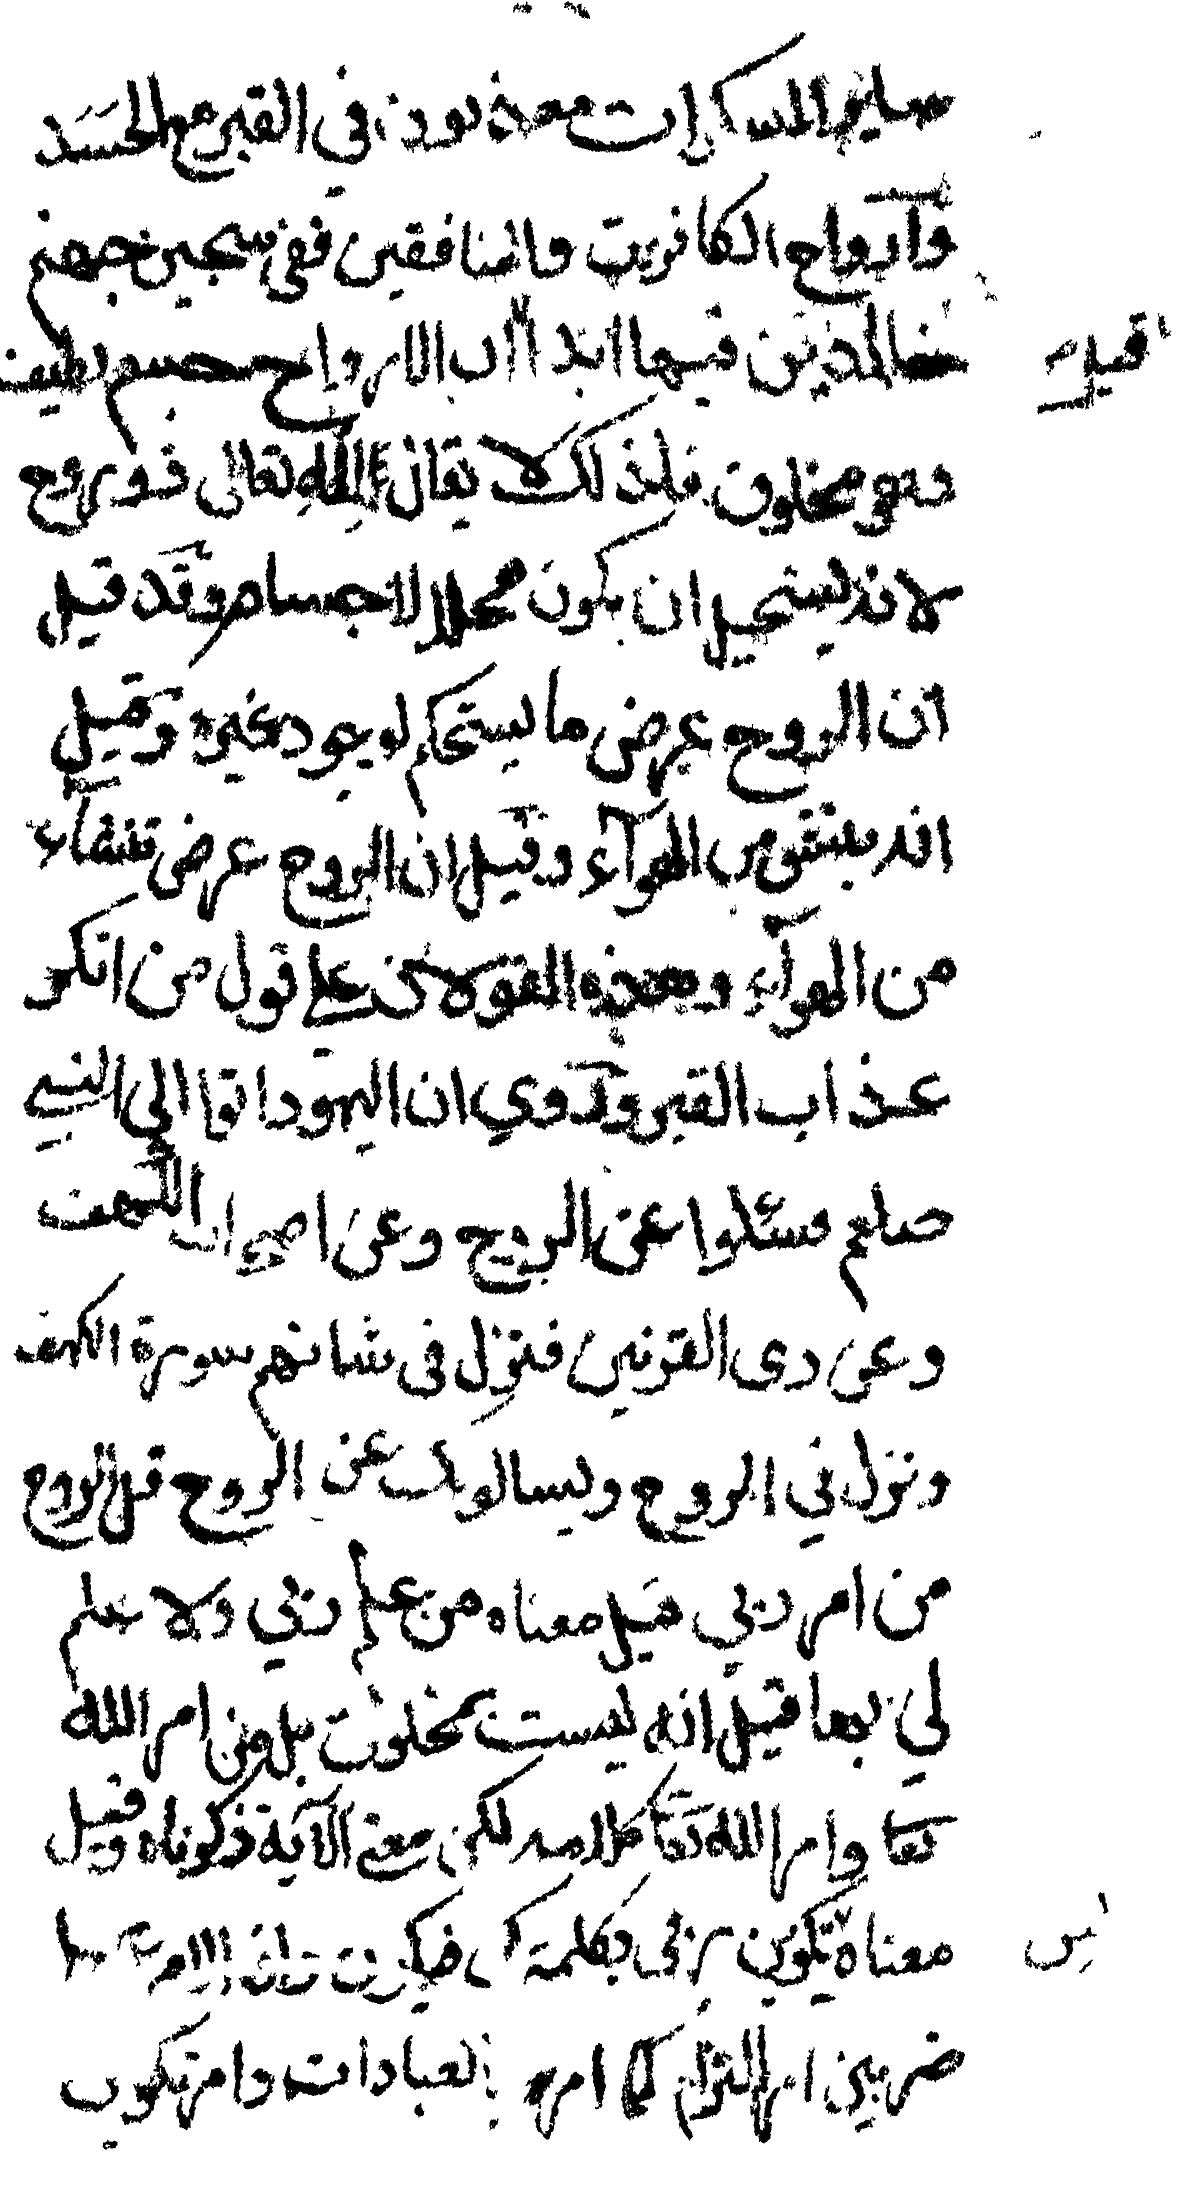 صلين المسكرات معذبون في القبر مع الجسد
وأرواح الكافرين والمنافقين ففي سجين جهنم
خالدين فيها ابدا ان الارواح جسم لطيف
وهو مخلوق فلذلك لا يقال الله تعالى ذو روح
لانه يستحيل ان يكون محلا للاجسام وقد قيل
ان الروح عرض ما يستحكم لوجود غيره وقيل
انه ينشق من الهوآء وقيل ان الروح عرض تنشاء
من الهوآء وهذه القولان على قول من انكر
عذاب القبر وروي ان اليهود اتوا الى النبي
صلعم فسئلوا عن الروح وعن اصحاب الكهف
وعن ذى القرنين فنزل فى شانهم سورة الكهف
ونزل في الروح ويسالونك عن الروح قل الروح
من امر ربي قيل معناه من علم ربي ولا علم
لي بها قيل انه ليست بمخلوق بل من امر الله
تعا وامر الله تعا كلامه لكن معنى الآية ذكرناه وقيل
معناه تكوين ربى بكلمة كن فيكون لان الامر على
ضربين امر التزام كا امره بالعبادات وامر تكوين